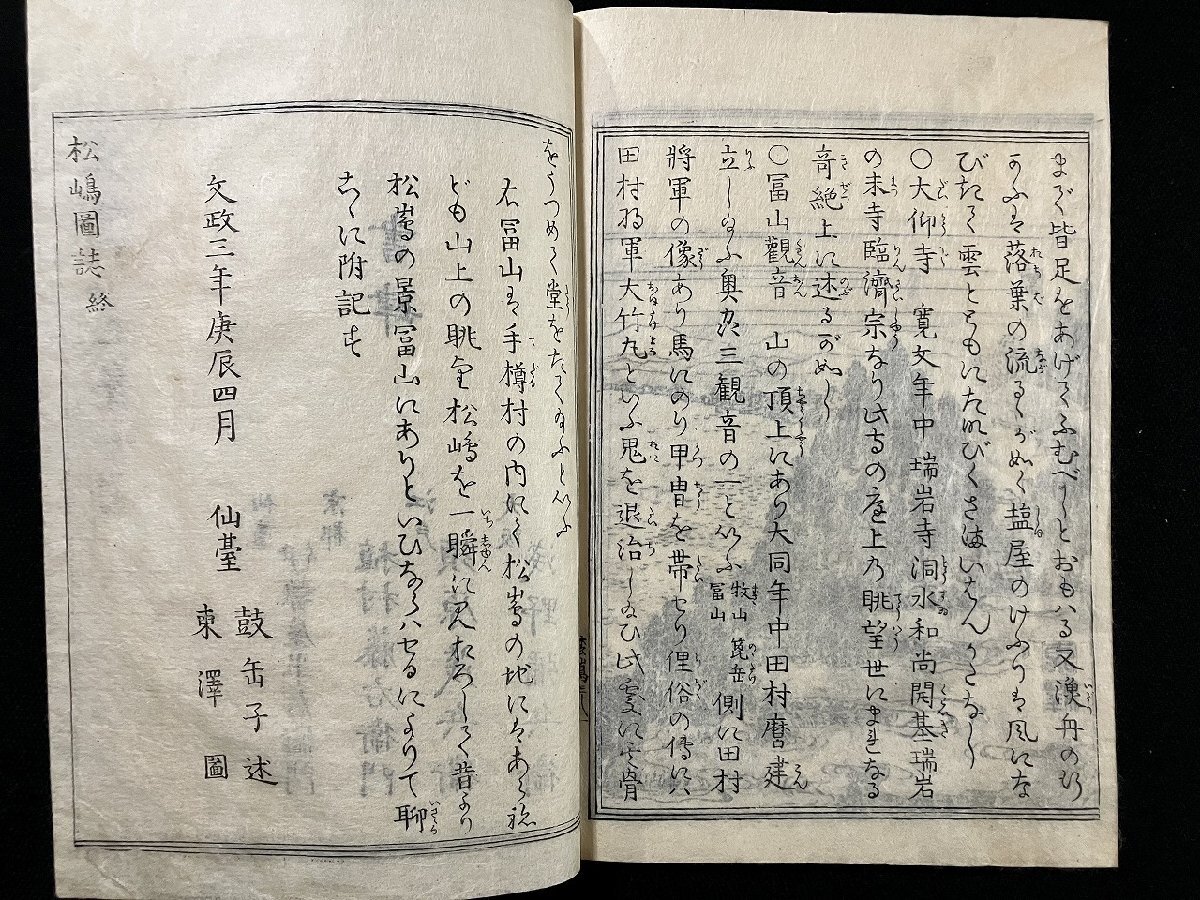 まで皆足をあげてふむべしとおもハる又漁舟の
かふは落葉の流るゝが如く塩屋のけふりは風にな
びきて雲とともにたなびくさまいはんかたなし
〇大仰寺 寛文年中瑞岩寺洞水和尚開基瑞岩
の末寺臨濟宗なり此寺の座上の眺望世にまれなる
奇絶上に述るが如し
〇冨山觀音 山の頂上にあり大同年中田村麿建
立し給ふ奥州三観音の一と云ふ 牧山 箟岳 冨山 側に田村
將軍の像あり馬にのり甲冑を帯せり俚俗の傳に
田村将軍大竹丸といふ鬼を退治し給ひ此處に其骨
をうづめて堂をたて給ふと云ふ
右冨山は手樽村の内にて松嶋の地にはあらね
ども山上の眺望松嶋を一瞬に見おろして昔より
松嶋の景冨山にありといひならハせるによりて聊
こゝに附記す
文政三年庚辰四月 仙臺 鼓缶子述
東澤 圖
松嶋圖誌 終